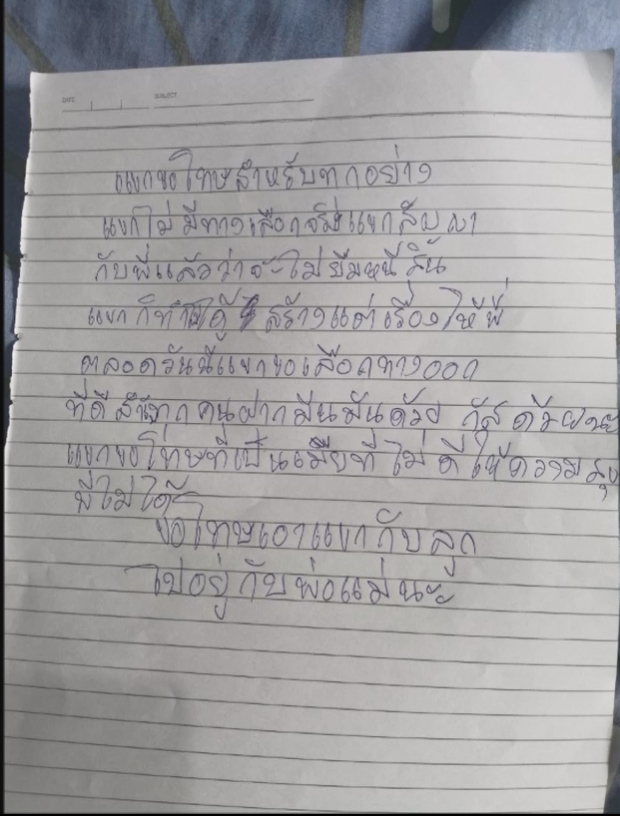 DATE SUBJECT
แขกขอโทษสำหรับทุกอย่าง
แขกไม่มีทางเลือกจริงแขกสัญญา
กับพี่แล้วว่าจะไม่ยืมหนี้
แขกก็ทำ สร้างแต่เรื่องให้พี่
ตลอดวันนี้แขกขอเลือกทางออก
ที่ดี ทุกคนฝากมีนมันด้วย ด้วยนะ
แขกขอโทษที่เป็นเมียที่ไม่ดีให้ความสุข
พี่ไม่ได้
ขอโทษเอาแขกกับลูก
ไปอยู่กับพ่อแม่นะ